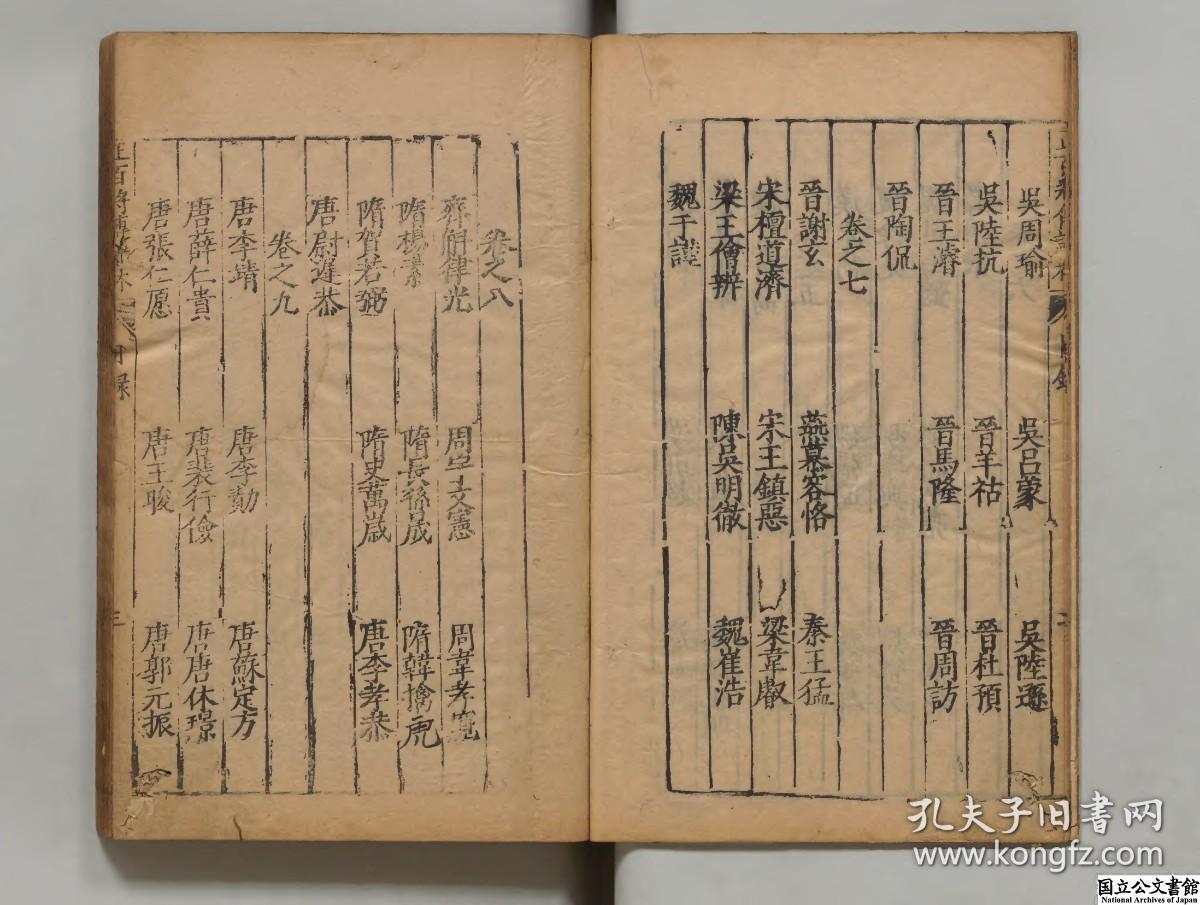 吳周瑜 吳呂蒙 吳陸遜
吳陸抗 晉羊祜 晉杜預
晉王濬 晉馬隆 晉周訪
晉陶侃
卷之七
晉謝玄 燕慕容恪 秦王猛
宋檀道濟 宋王鎮惡 梁韋叡
梁王僧辨 陳吳明徹 魏崔浩
魏于謹
卷之八
齊斛律光 周宇文憲 周韋孝寬
隋楊素 隋長孫晟 隋韓擒虎
隋賀若弼 隋史萬歲 唐李孝恭
唐尉遲恭
卷之九
唐李靖 唐李勣 唐蘇定方
唐薛仁貴 唐裴行儉 唐唐休璟
唐張仁愿 唐王晙 唐郭元振
百將傳 目録 三
孔夫子旧书网
www.kongfz.com
国立公文書館
National Archives of Japan